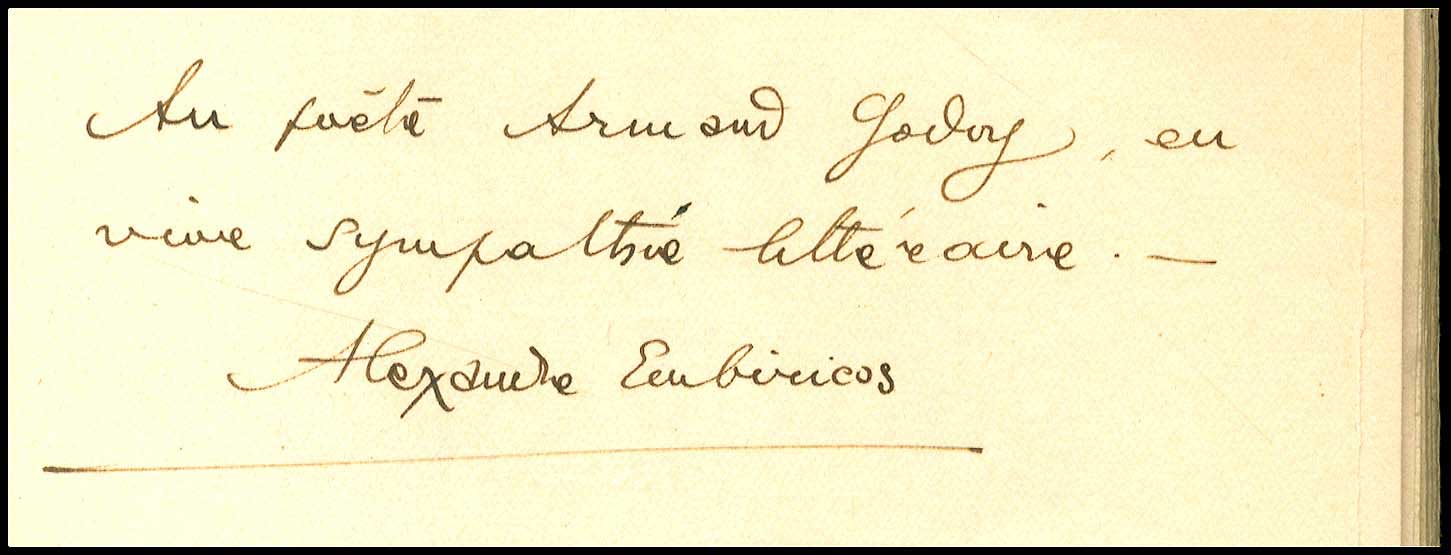 Au poète Armand Godoy, en
vive sympathie littéraire. —
Alexandre Embiricos